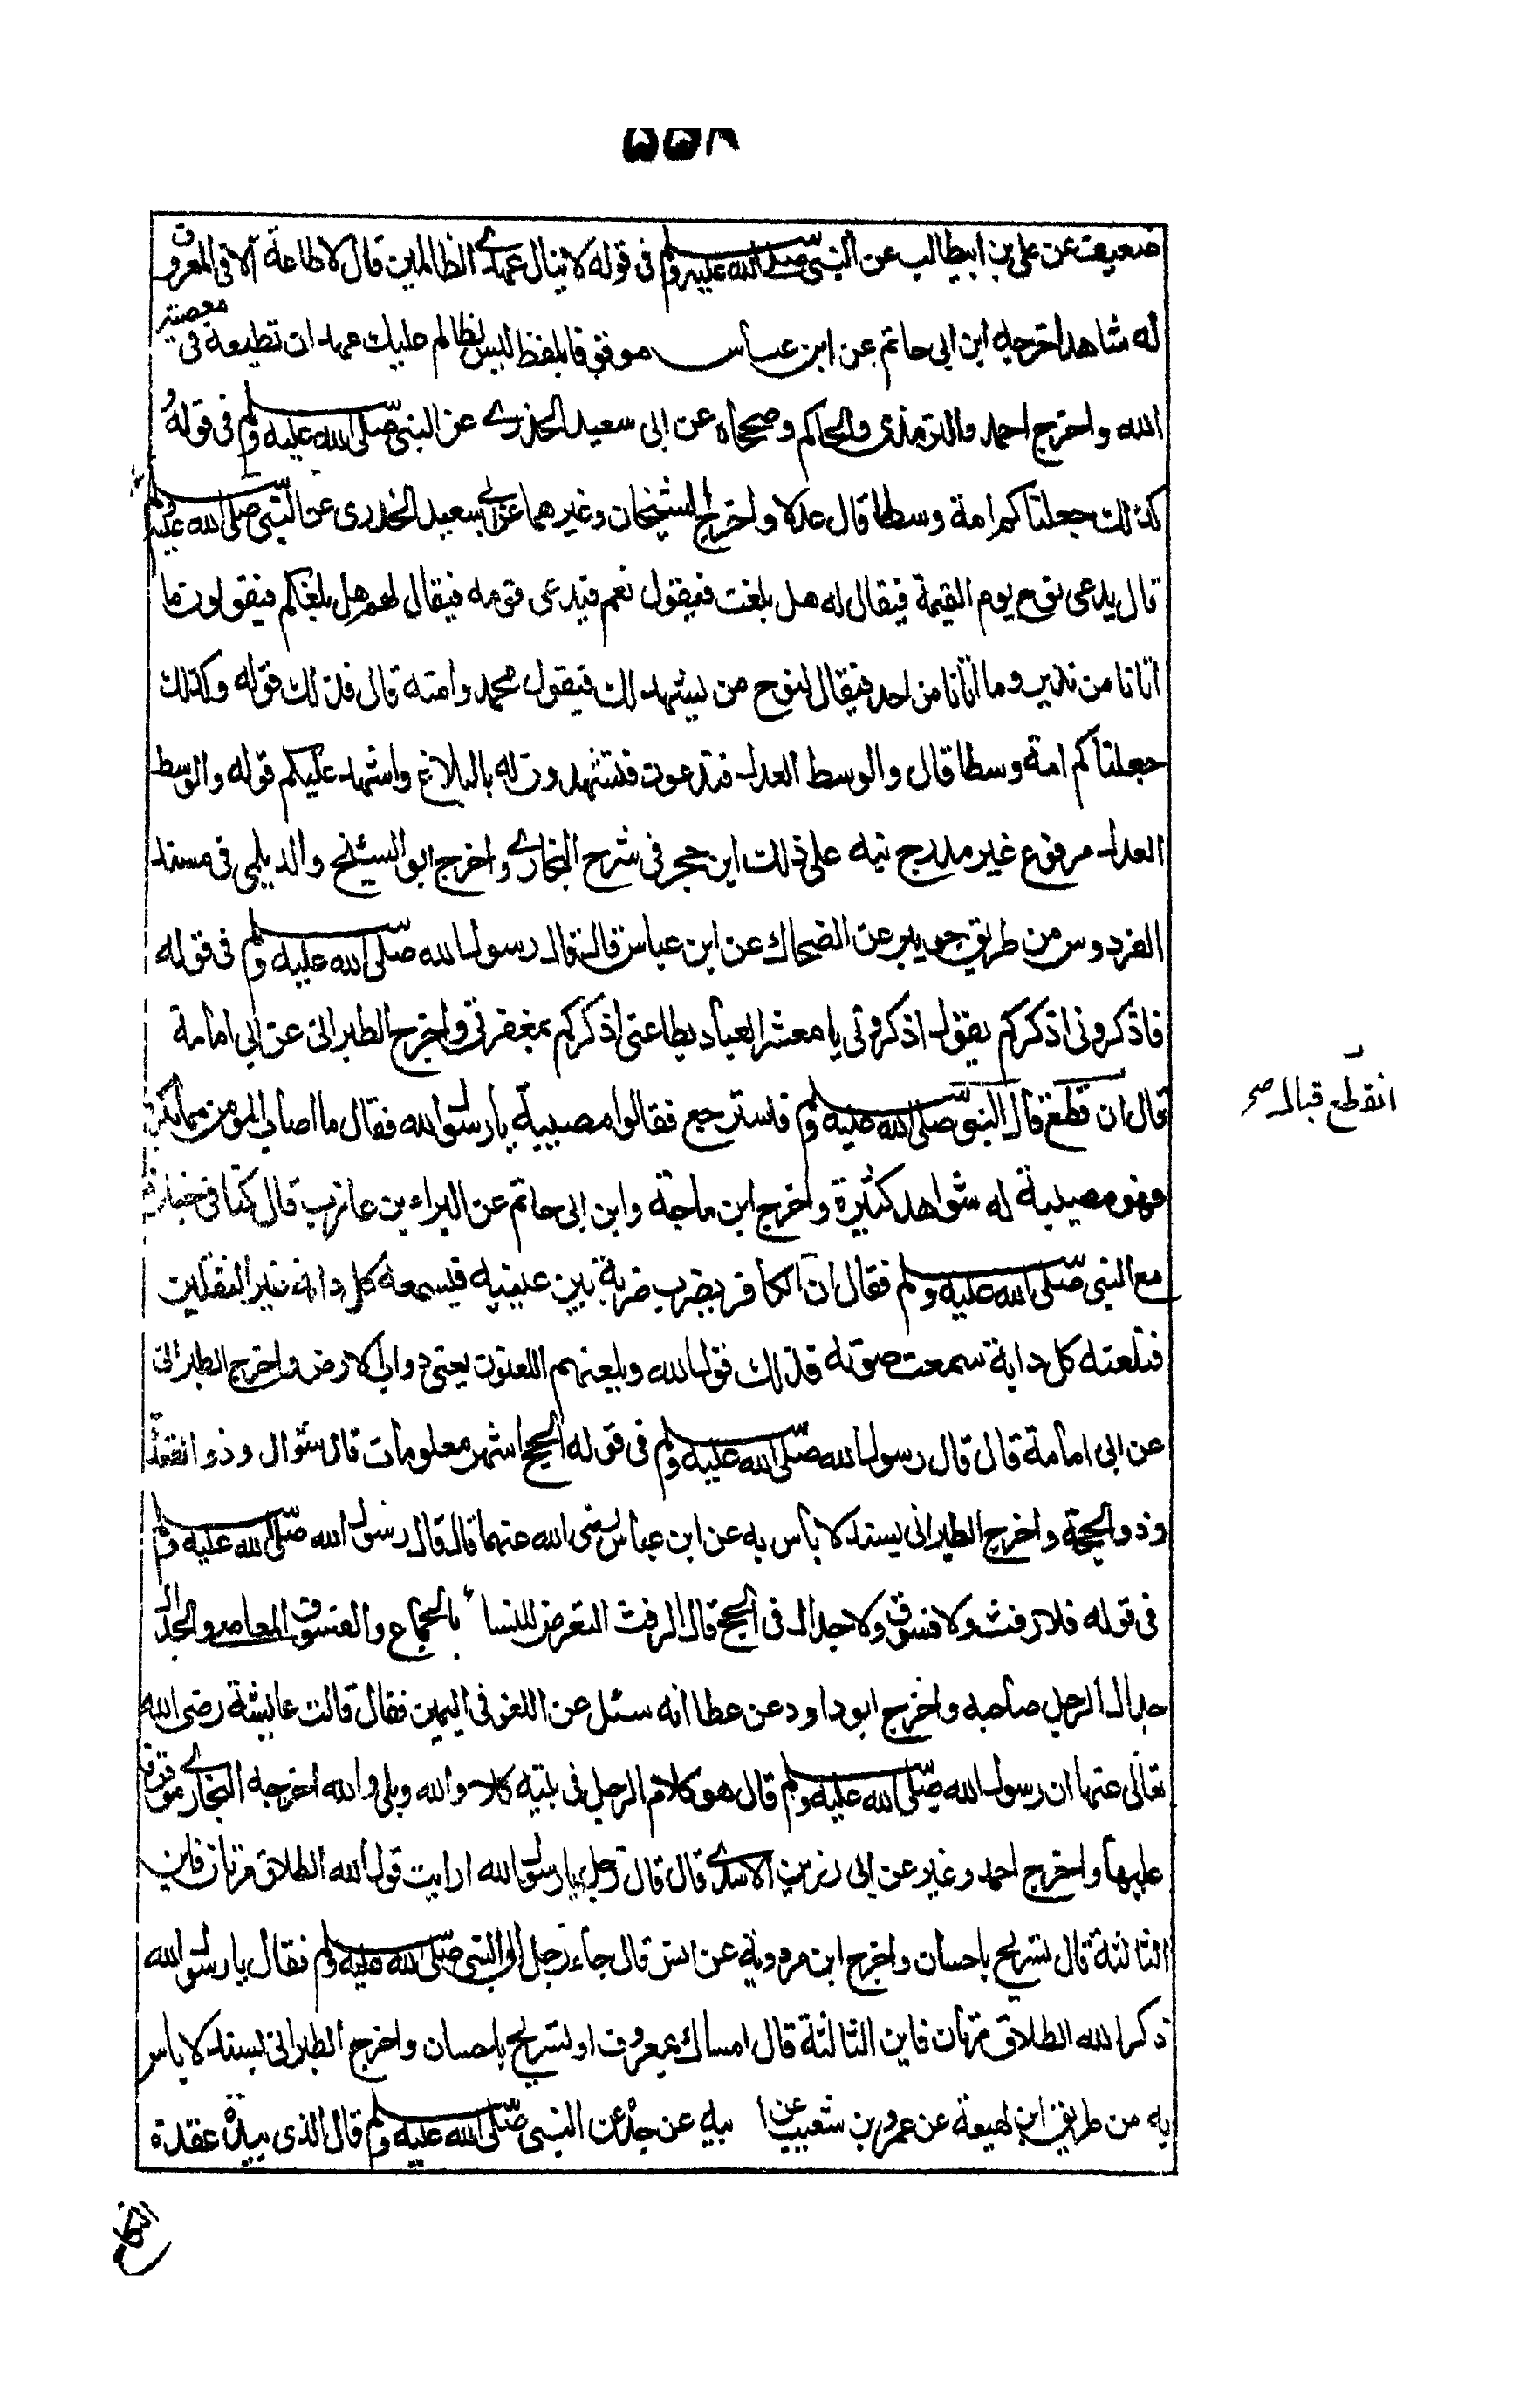 ٥٥٨
ضعيف عن على بن ابيطالب عن النبى صلى الله عليه ولم فى قوله لا ينال عهدى الظالمين قال لا طاعة الا فى المعروف
له شاهد اخرجه ابن ابى حاتم عن ابن عباس موقوفا بلفظ ليس لظالم عليك عهد ان تطيعه فى معصية
الله واخرج احمد والترمذى والحاكم وصححاه عن ابى سعيد الخدرى عن النبى صلى الله عليه ولم فى قوله و
كذلك جعلناكم امة وسطا قال عدلا واخرج الشيخان وغيرهما عن ابى سعيد الخدرى عن النبى صلى الله عليه ولم
قال يدعى نوح يوم القيمة فيقال له هل بلغت فيقول نعم فيدعى قومه فيقال لهم هل بلغكم فيقولون ما
اتانا من نذير وما اتانا من احد فيقال لنوح من يشهد لك فيقول محمد وامته قال فذلك قوله وكذلك
جعلناكم امة وسطا قال والوسط العدل فتدعون فتشهدون له بالبلاغ واشهد عليكم قوله والوسط
العدل مرفوع غير مدرج نبه على ذلك ابن حجر فى شرح البخارى واخرج ابو الشيخ والديلمى فى مسند
الفردوس من طريق جويبر عن الضحاك عن ابن عباس قال قال رسول الله صلى الله عليه ولم فى قوله
فاذكرونى اذكركم يقول اذكرونى يا معشر العباد بطاعتى اذكركم بمغفرتى واخرج الطبرانى عن ابى امامة
قال ان قطع قال النبى صلى الله عليه ولم فاسترجع فقالوا مصيبة يا رسول الله فقال ما اصاب المومن مما يكره
انقطع قبال صح
فهو مصيبة له شواهد كثيرة واخرج ابن ماجة وابن ابى حاتم عن البراء بن عازب قال كنا فى جنازة
مع النبى صلى الله عليه ولم فقال ان الكافر يضرب ضربة بين عينيه فيسمعه كل دابة غير الثقلين
فتلعنه كل دابة سمعت صوته فذلك قول الله ويلعنهم اللعنون يعنى دواب الارض واخرج الطبرانى
عن ابى امامة قال قال رسول الله صلى الله عليه ولم فى قوله الحج اشهر معلومات قال شوال وذو القعدة
وذو الحجة واخرج الطبرانى بسند لا باس به عن ابن عباس رضى الله عنهما قال قال رسول الله صلى الله عليه ولم
فى قوله فلا رفث ولا فسوق ولا جدال فى الحج قال الرفث التعرض للنساء بالجماع والفسوق المعاصى والجدال
جدال الرجل صاحبه واخرج ابو داود عن عطا انه سئل عن اللغو فى اليمين فقال قالت عايشة رضى الله
تعالى عنها ان رسول الله صلى الله عليه ولم قال هو كلام الرجل فى بيته كلا والله وبلى والله اخرجه البخارى موقوفا
عليها واخرج احمد وغيره عن ابى رزين الاسدى قال قال رجل يا رسول الله ارايت قول الله الطلاق مرتان فاين
الثالثة قال تسريح باحسان واخرج ابن مردوية عن انس قال جاء رجل الى النبى صلى الله عليه ولم فقال يا رسول الله
ذكر الله الطلاق مرتان فاين الثالثة قال امساك بمعروف او تسريح باحسان واخرج الطبرانى بسند لا باس
به من طريق ابن لهيعة عن عمرو بن شعيب عن ابيه عن جده عن النبى صلى الله عليه ولم قال الذى بيده عقدة